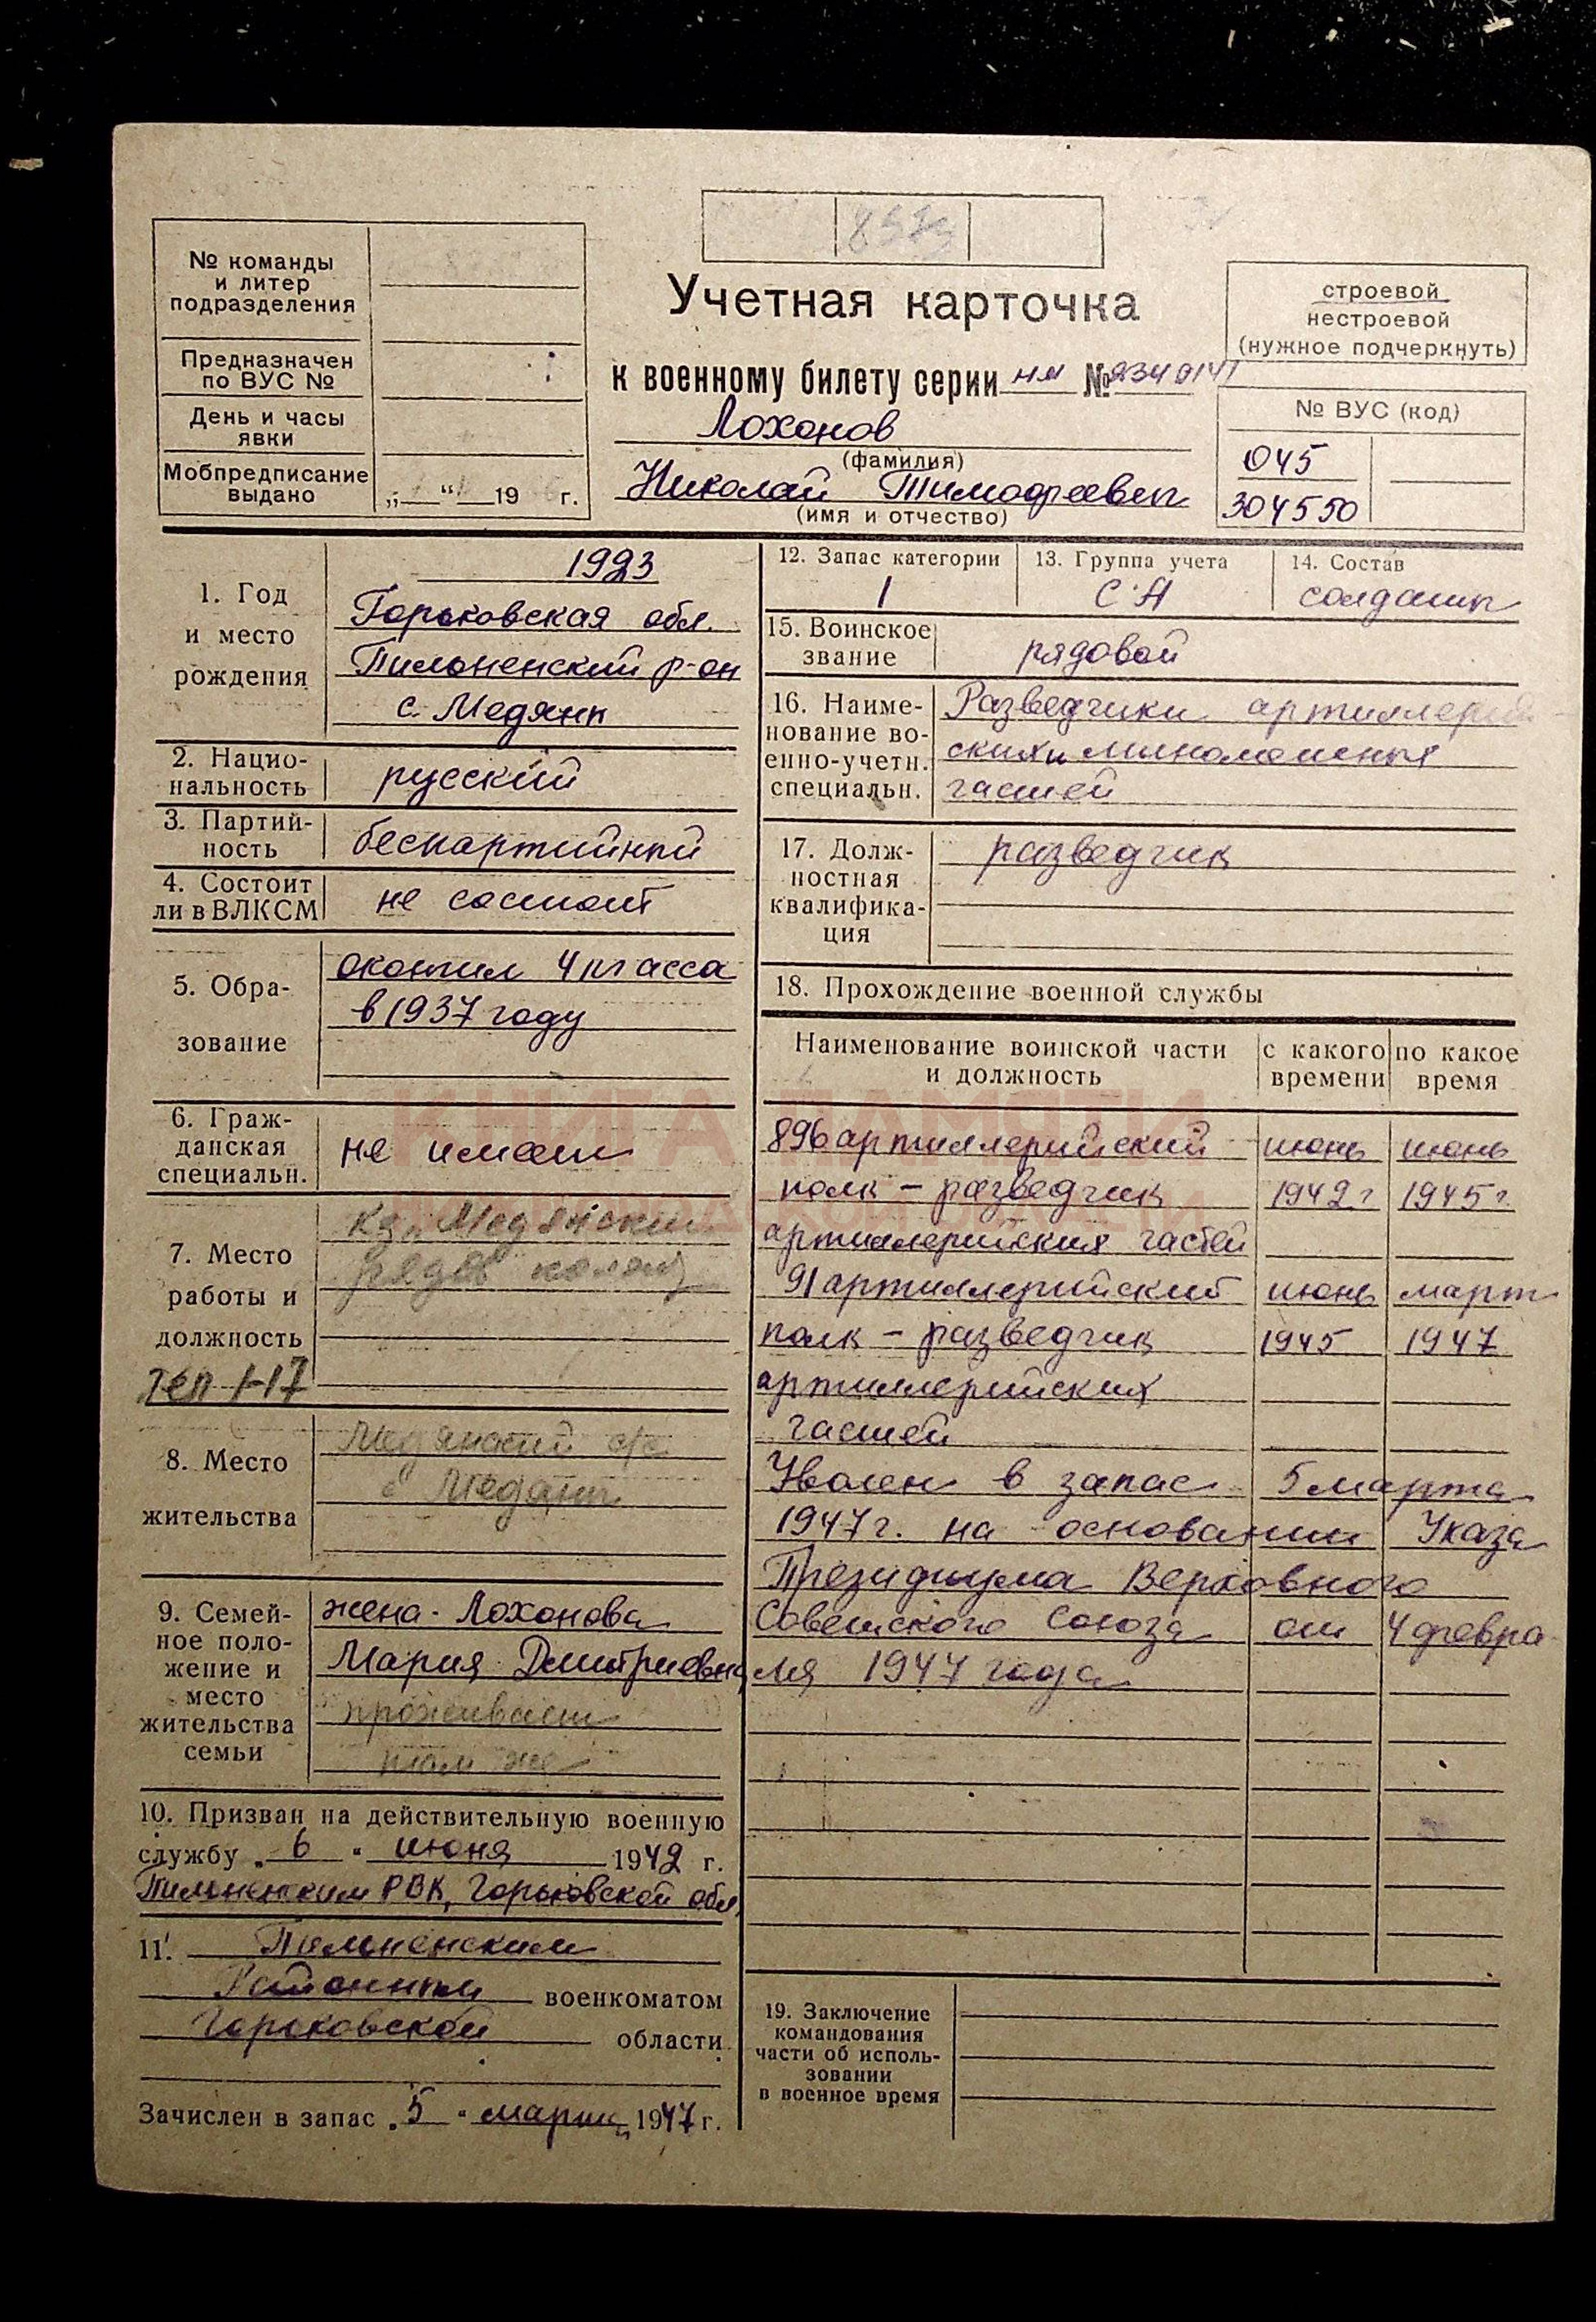 № команды
и литер
подразделения
Предназначен
по ВУС №
День и часы
явки
Мобпредписание
выдано
„ “ 19 г.
Учетная карточка
к военному билету серии нм №
Лохонов
(фамилия)
Николай Тимофеевич
(имя и отчество)
строевой
нестроевой
(нужное подчеркнуть)
№ ВУС (код)
045
304550
1. Год
и место
рождения
1923
Горьковская обл.
Пильненский р-он
с. Медяны
2. Нацио-
нальность
русский
3. Партий-
ность
беспартийный
4. Состоит
ли в ВЛКСМ
не состоит
5. Обра-
зование
окончил 4 класса
в 1937 году
6. Граж-
данская
специальн.
не имеет
7. Место
работы и
должность
Медянский
рядов
8. Место
жительства
Медянский с/с
с Медяны
9. Семей-
ное поло-
жение и
место
жительства
семьи
жена - Лохонова
Мария Дмитриевна
проживает
там же
10. Призван на действительную военную
службу „ 6 “ июня 1942 г.
Пильненским РВК, Горьковской обл.
11. Пильненским
Районным военкоматом
Горьковской области
Зачислен в запас „ 5 “ марта 1947 г.
12. Запас категории
1
13. Группа учета
СА
14. Состав
солдаты
15. Воинское
звание
рядовой
16. Наиме-
нование во-
енно-учетн.
специальн.
Разведчики артиллерий-
ских и минометных
частей
17. Долж-
ностная
квалифика-
ция
разведчик
18. Прохождение военной службы
Наименование воинской части
и должность
с какого
времени
по какое
время
896 артиллерийский июнь июнь
полк - разведчик 1942 г 1945 г.
артиллерийских частей
91 артиллерийский июнь март
полк - разведчик 1945 1947
артиллерийских
частей
Уволен в запас 5 марта
1947 г. на основании Указа
Президиума Верховного
Советского Союза от 4 февра
ля 1947 года
19. Заключение
командования
части об исполь-
зовании
в военное время
КНИГА ПАМЯТИ